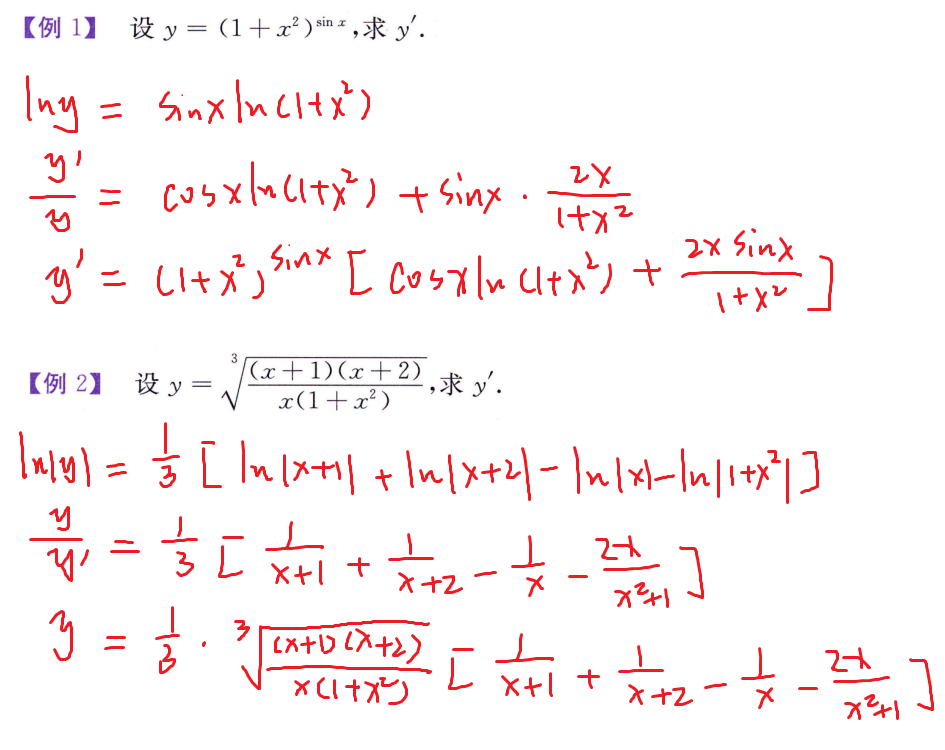 【例 1】 设 y = (1+x²)^{sin x},求 y′.
ln y = sinx ln(1+x²)
y′/y = cosx ln(1+x²) + sinx · 2x/(1+x²)
y′ = (1+x²)^{sinx} [ cosx ln(1+x²) + 2x sinx/(1+x²) ]
【例 2】 设 y = ∛((x+1)(x+2)/(x(1+x²))),求 y′.
ln|y| = 1/3 [ ln|x+1| + ln|x+2| − ln|x| − ln|1+x²| ]
y/y′ = 1/3 [ 1/(x+1) + 1/(x+2) − 1/x − 2x/(x²+1) ]
y = 1/3 · ∛((x+1)(x+2)/(x(1+x²))) [ 1/(x+1) + 1/(x+2) − 1/x − 2x/(x²+1) ]